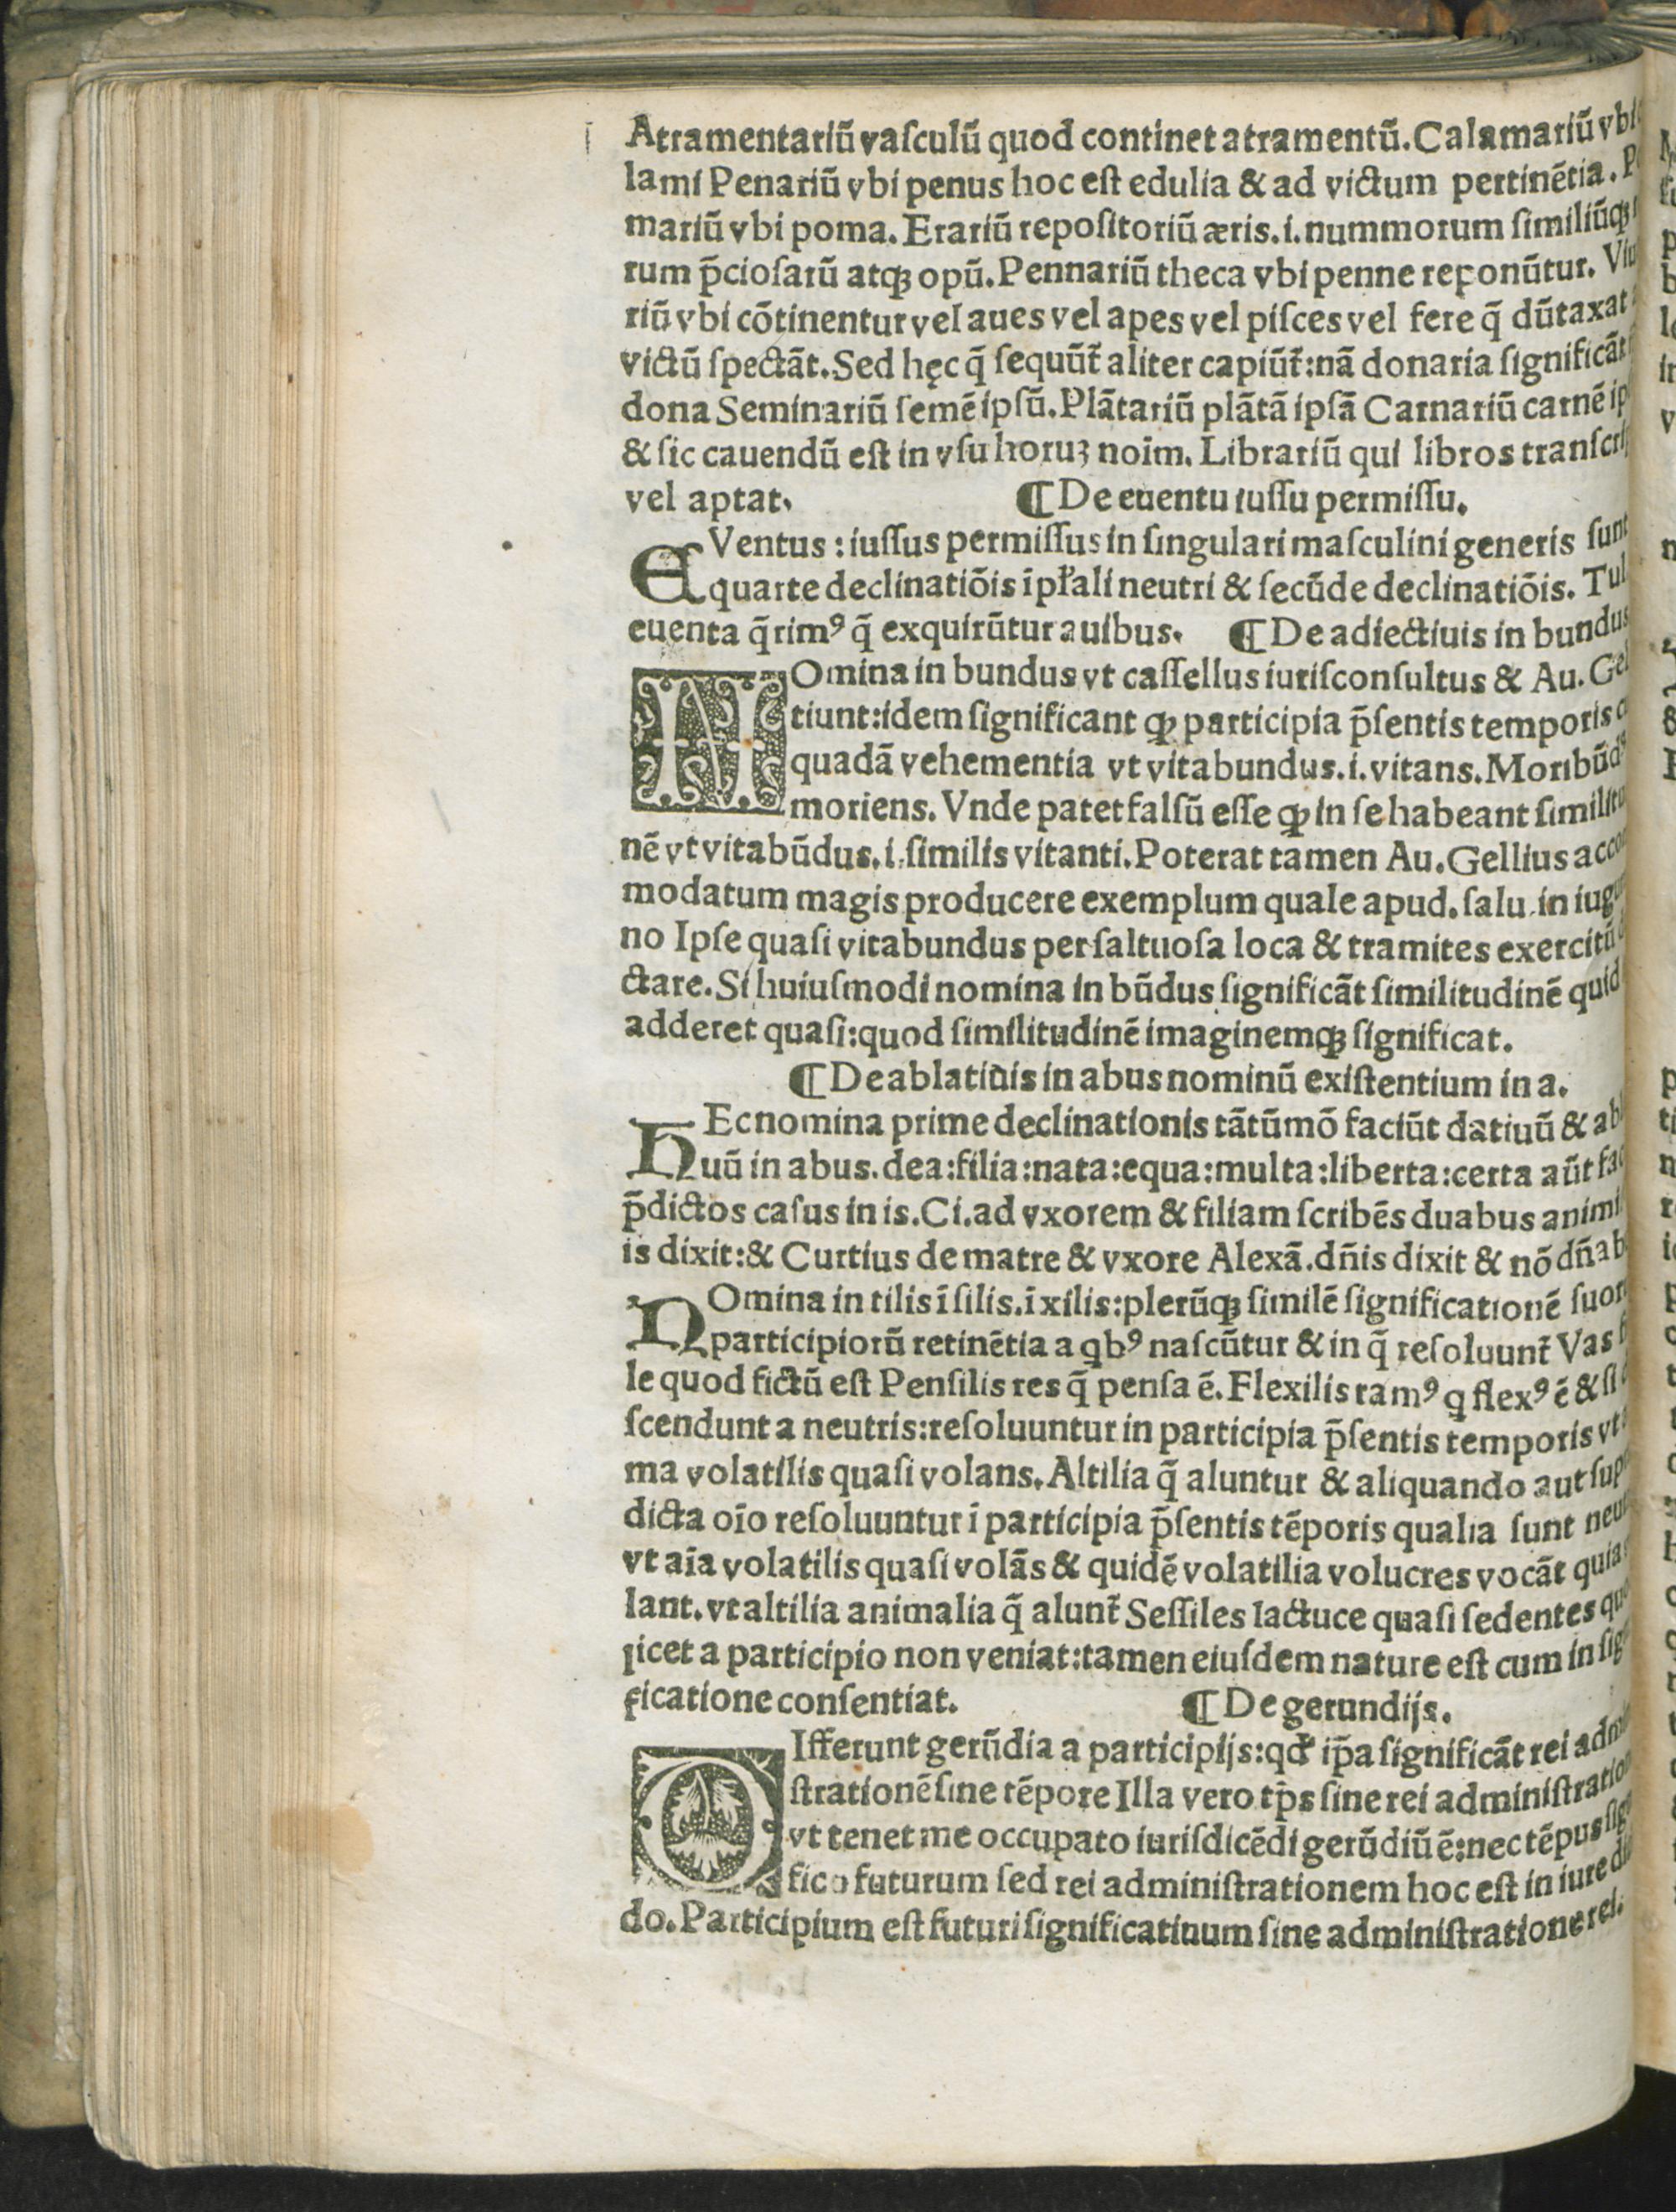 Atramentariū vaſculū quod continet atramentū. Calamariū vbi
lami Penariū vbi penus hoc eſt edulia & ad victum pertinētia.
mariū vbi poma. Erariū repoſitoriū æris. i. nummorum ſimiliūqꝫ
rum p̄cioſarū atqꝫ opū. Pennariū theca vbi penne reponūtur.
riū vbi cōtinentur vel aues vel apes vel piſces vel fere q̄ dūtaxat
victū ſpectāt. Sed hęc q̄ ſequūt̄ aliter capiūt̄: nā donaria ſignificāt
dona Seminariū ſemē ipſū. Plātariū plātā ipſā Carnariū carnē
& ſic cauendū eſt in vſu horuꝫ noīm. Librariū qui libros
vel aptat. ¶ De euentu iuſſu permiſſu.
EVentus: iuſſus permiſſus in ſingulari maſculini generis ſunt
quarte declinatiōis ī pl̄rali neutri & ſecūde declinatiōis.
euenta q̄rimꝰ q̄ exquirūtur auibus. ¶ De adiectiuis in bundus
NOmina in bundus vt caſſellus iuriſconſultus & Au.
tiunt: idem ſignificant qꝫ participia p̄ſentis temporis
quadā vehementia vt vitabundus. i. vitans. Moribūdꝰ
moriens. Vnde patet falſū eſſe qꝫ in ſe habeant
nē vt vitabūdus. i. ſimilis vitanti. Poterat tamen Au. Gellius
modatum magis producere exemplum quale apud. ſalu. in
no Ipſe quaſi vitabundus per ſaltuoſa loca & tramites exercitū
ctare. Si huiuſmodi nomina in būdus ſignificāt ſimilitudinē quid
adderet quaſi: quod ſimilitudinē imaginemqꝫ ſignificat.
¶ De ablatiuis in abus nominū exiſtentium in a.
HEc nomina prime declinationis tātūmō faciūt datiuū &
uū in abus. dea: filia: nata: equa: multa: liberta: certa aūt
p̄dictos caſus in is. Ci. ad vxorem & filiam ſcribēs duabus
is dixit: & Curtius de matre & vxore Alexā. dn̄is dixit & nō
NOmina in tilis ī ſilis. ī xilis: plerūqꝫ ſimilē ſignificationē
participiorū retinētia a qbꝰ naſcūtur & in q̄ reſoluunt̄ Vas
le quod fictū eſt Penſilis res q̄ penſa ē. Flexilis ramꝰ q flexꝰ ē &
ſcendunt a neutris: reſoluuntur in participia p̄ſentis temporis vt
ma volatilis quaſi volans. Altilia q̄ aluntur & aliquando aut
dicta oīo reſoluuntur ī participia p̄ſentis tēporis qualia ſunt
vt aīa volatilis quaſi volās & quidē volatilia volucres vocāt quia
lant. vt altilia animalia q̄ alunt̄ Seſſiles lactuce quaſi ſedentes
licet a participio non veniat: tamen eiuſdem nature eſt cum in
ficatione conſentiat. ¶ De gerundijs.
DIfferunt gerūdia a participijs: qd̄ ip̄a ſignificāt rei
ſtrationē ſine tēpore Illa vero tp̄s ſine rei
vt tenet me occupato iuriſdicēdi gerūdiū ē: nec tēpus
fico futurum ſed rei adminiſtrationem hoc eſt in iure
do. Participium eſt futuri ſignificatiuum ſine adminiſtratione rei.